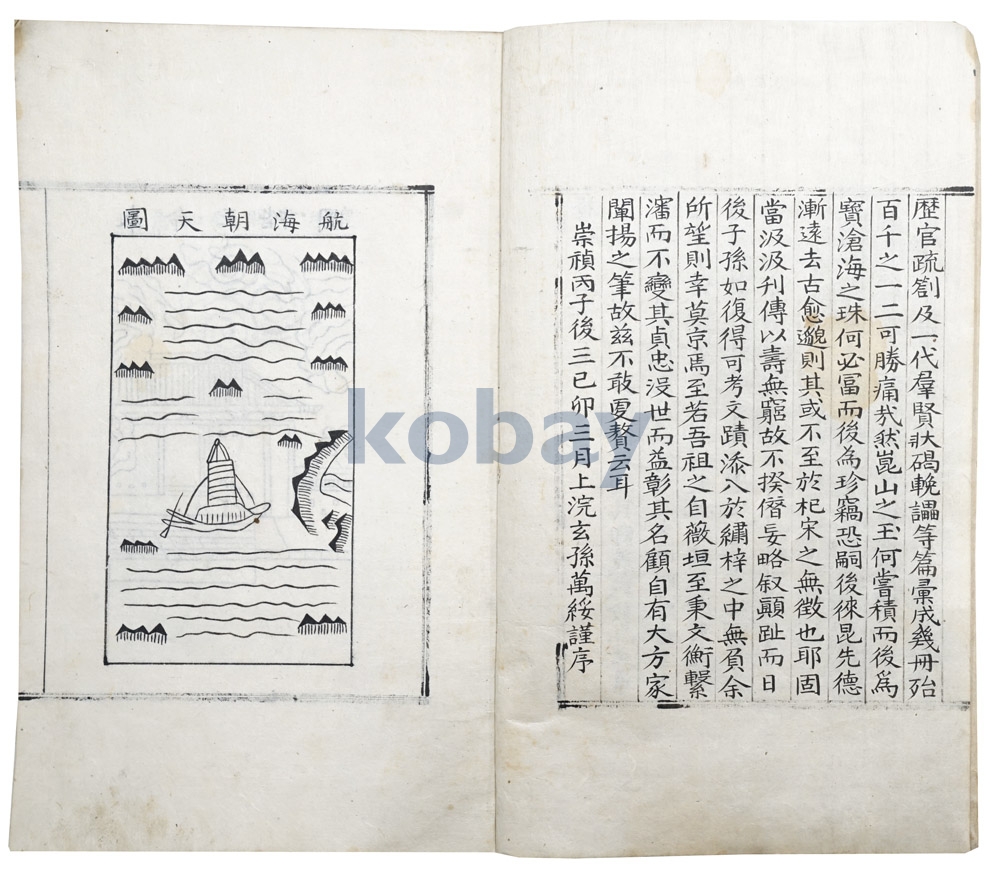 歷官疏劄及一代羣賢狀碣輓讄等篇彙成幾冊殆
百千之一二可勝痛哉然崑山之玉何嘗積而後爲
寶滄海之珠何必冨而後為珍竊恐嗣後徠昆先德
漸遠去古愈邈則其或不至於杞宋之無徵也耶固
當汲汲刋傳以壽無窮故不揆僭妄略叙顚趾而日
後子孫如復得可考文蹟添入於繡梓之中無負余
所望則幸莫京焉至若吾祖之自薇垣至秉文衡繫
瀋而不變其貞忠沒世而益彰其名顧自有大方家
闡揚之筆故玆不敢更贅云耳
崇禎丙子後三己卯三月上浣玄孫萬綏謹序
航海朝天圖
kobay